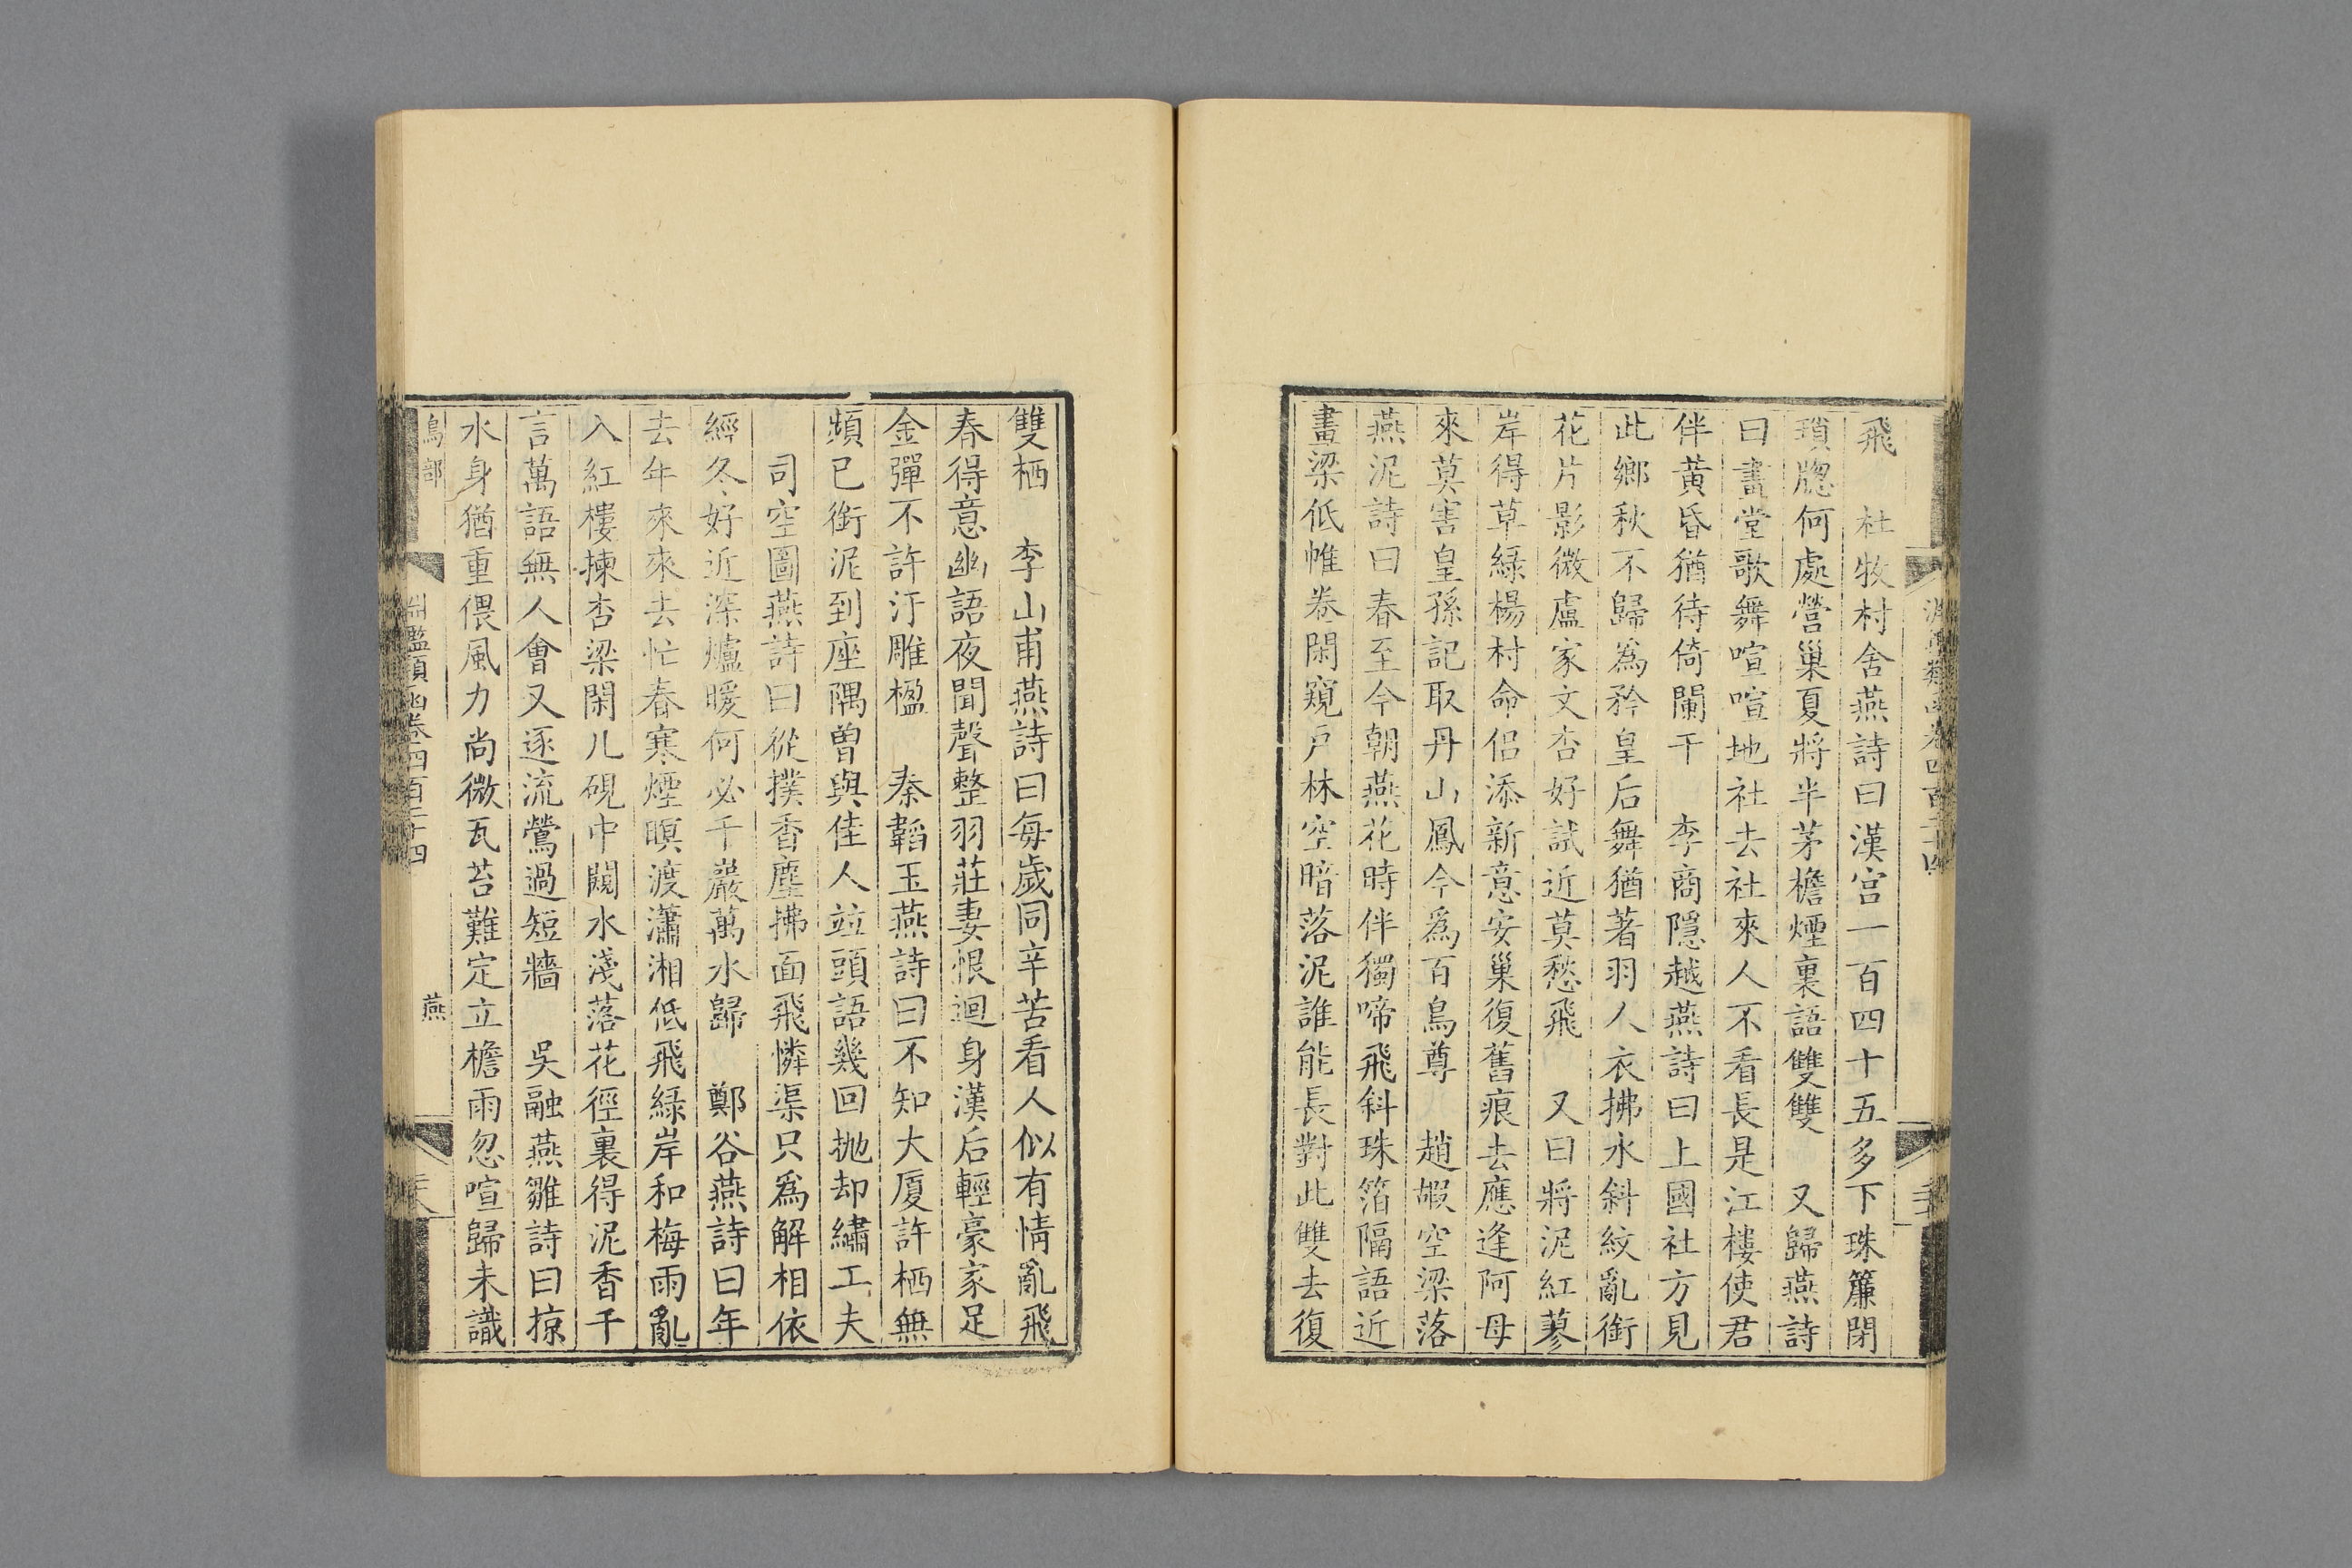 飛　杜牧村舍燕詩曰漢宮一百四十五多下珠簾閉
瑣牕何處營巢夏將半茅檐煙裏語雙雙　又歸燕詩
曰畫堂歌舞喧喧地社去社來人不看長是江樓使君
伴黃昏猶待倚闌干　李商隱越燕詩曰上國社方見
此鄉秋不歸爲矜皇后舞猶著羽人衣拂水斜紋亂銜
花片影微盧家文杏好試近莫愁飛　又曰將泥紅蓼
岸得草綠楊村命侣添新意安巢復舊痕去應逢阿母
來莫害皇孫記取丹山鳳今爲百鳥尊　趙嘏空梁落
燕泥詩曰春至今朝燕花時伴獨啼飛斜珠箔隔語近
畫梁低帷卷閑窺戶林空暗落泥誰能長對此雙去復
雙栖　李山甫燕詩曰每歲同辛苦看人似有情亂飛
春得意幽語夜聞聲整羽莊妻恨迴身漢后輕豪家足
金彈不許汙雕楹　秦韜玉燕詩曰不知大厦許栖無
頻已銜泥到座隅曾與佳人竝頭語幾回拋却繡工夫
司空圖燕詩曰從撲香塵拂面飛憐渠只爲解相依
經冬好近深爐暖何必千巖萬水歸　鄭谷燕詩曰年
去年來來去忙春寒煙暝渡瀟湘低飛綠岸和梅雨亂
入紅樓揀杏梁閑几硯中闚水淺落花徑裏得泥香千
言萬語無人會又逐流鶯過短牆　吳融燕雛詩曰掠
水身猶重偎風力尚微瓦苔難定立檐雨忽喧歸未識
鳥部　淵鑑類函卷四百二十四　燕